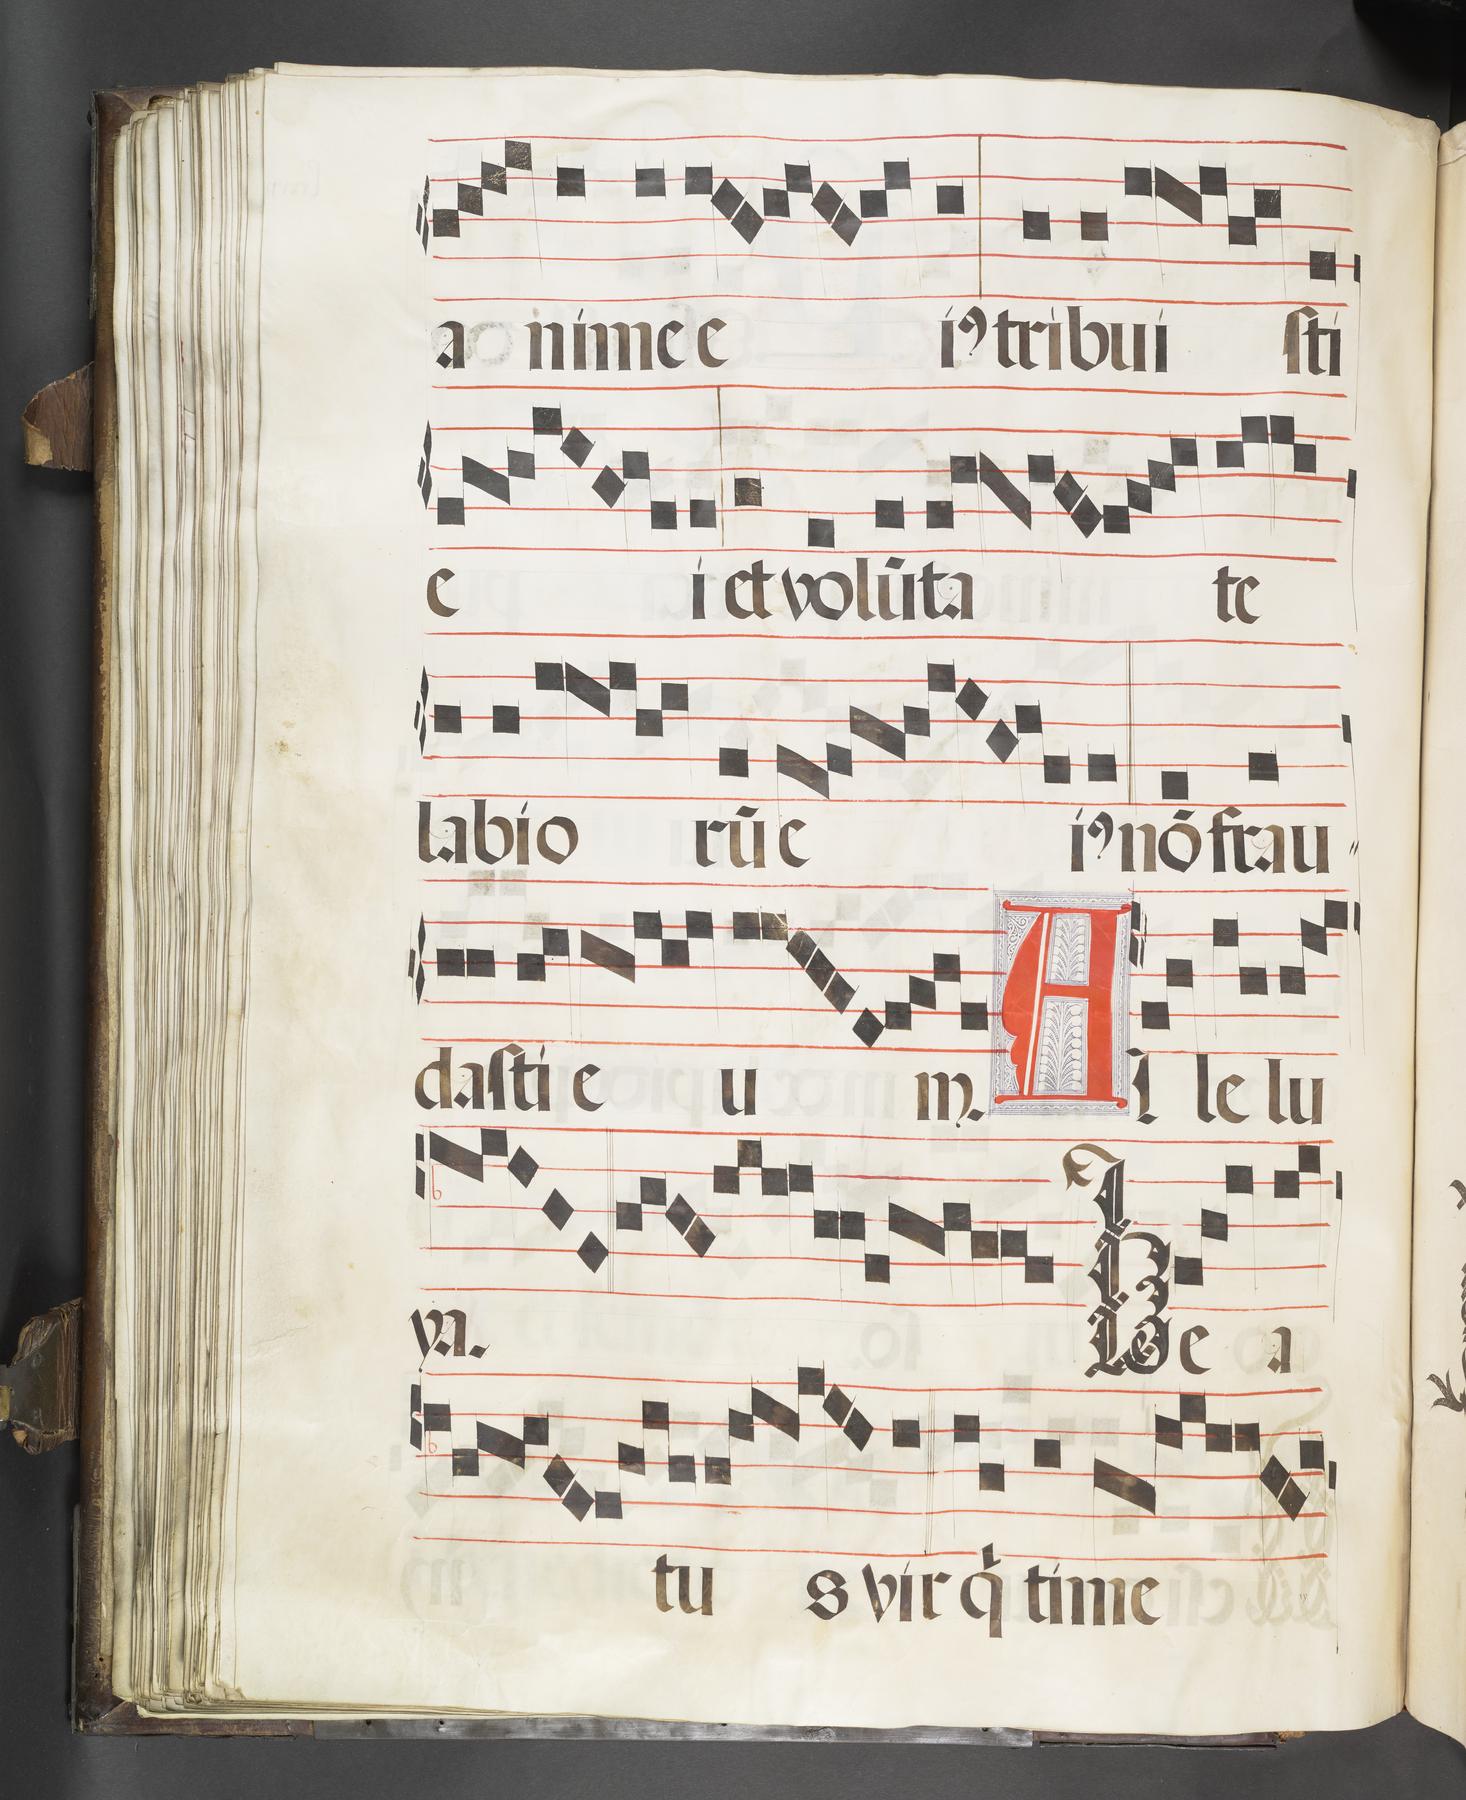 a nimee iꝯ tribui sti
e i et volūta te
labio rū e iꝯ nō frau
dasti e u m. Al le lu
ya. Be a
tu s vir q̇ time